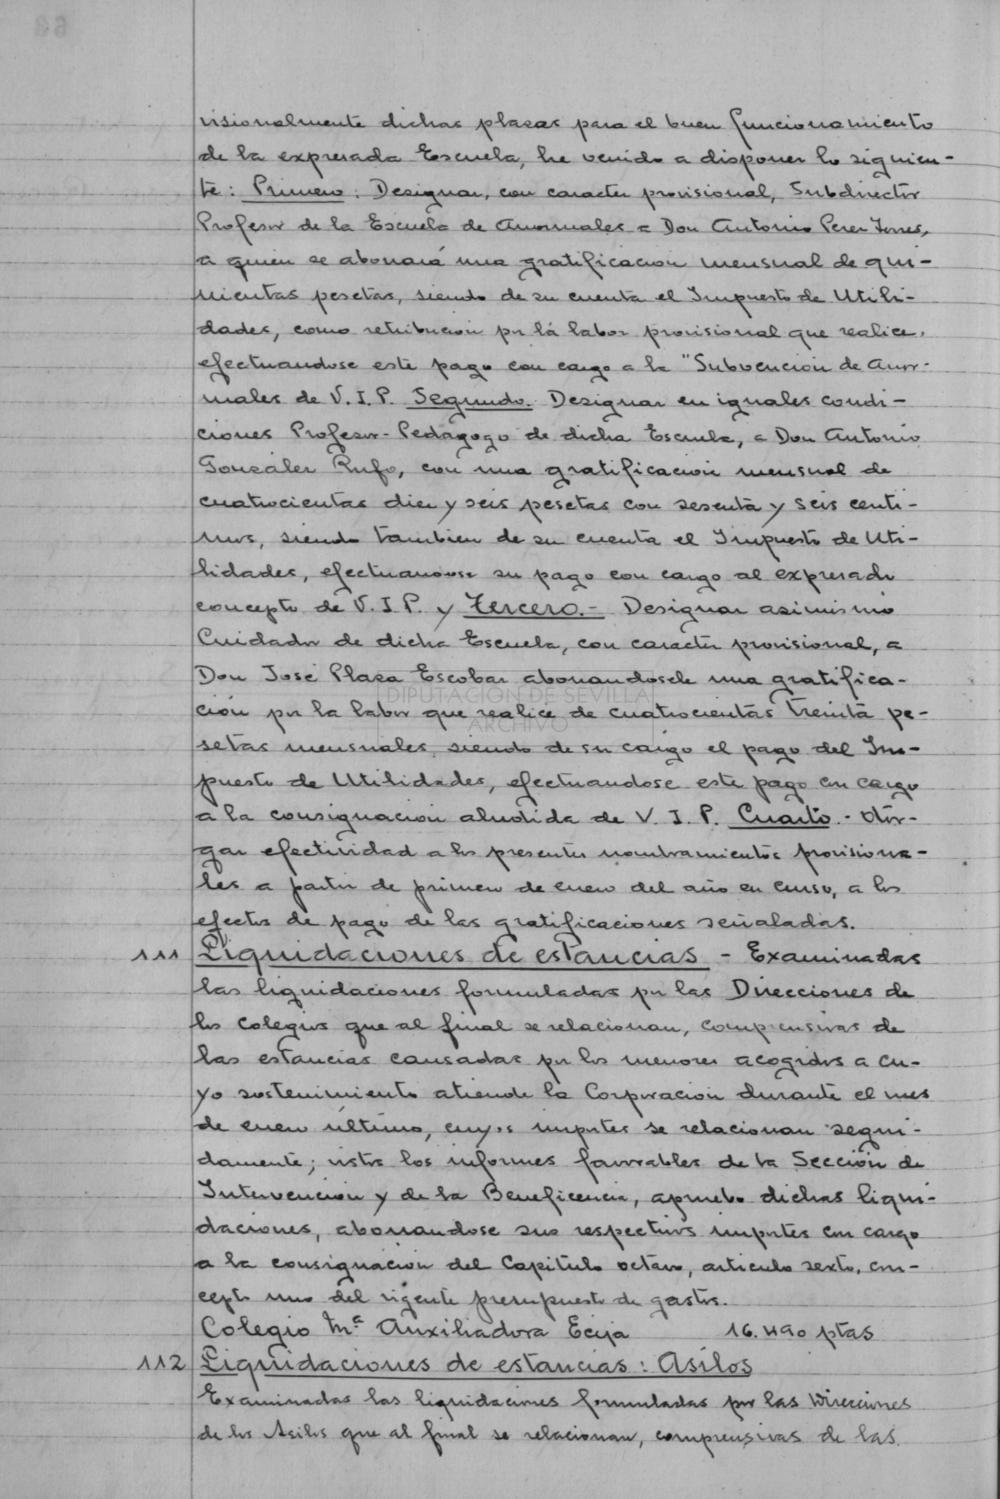 visionalmente dichas plazas para el buen funcionamiento
de la expresada Escuela, he venido a disponer lo siguien-
te: Primero: Designar, con caracter provisional, Subdirector
Profesor de la Escuela de Anormales a Don Antonio Perez Torres,
a quien se abonará una gratificacion mensual de qui-
nientas pesetas, siendo de su cuenta el Impuesto de Utili-
dades, como retribucion por la labor provisional que realice,
efectuandose este pago con cargo a la "Subvencion de Anor-
males de V.I.P. Segundo. Designar en iguales condi-
ciones Profesor-Pedagogo de dicha Escuela, a Don Antonio
Gonzalez Rufo, con una gratificacion mensual de
cuatrocientas diez y seis pesetas con sesenta y seis centi-
mos, siendo tambien de su cuenta el Impuesto de Uti-
lidades, efectuandose su pago con cargo al expresado
concepto de V.I.P. y Tercero.- Designar asimismo
Cuidador de dicha Escuela, con caracter provisional, a
Don José Plaza Escobar abonandosele una gratifica-
ción por la labor que realice de cuatrocientas treinta pe-
setas mensuales, siendo de su cargo el pago del Im-
puesto de Utilidades, efectuandose este pago con cargo
a la consignacion aludida de V. I. P. Cuarto.- Otor-
gar efectividad a los presentes nombramientos provisiona-
les a partir de primero de enero del año en curso, a los
efectos de pago de las gratificaciones señaladas.
111 Liquidaciones de estancias - Examinadas
las liquidaciones formuladas por las Direcciones de
los Colegios que al final se relacionan, comprensivas de
las estancias causadas por los menores acogidos a cu-
yo sostenimiento atiende la Corporacion durante el mes
de enero último, cuyos importes se relacionan segui-
damente; vistos los informes favorables de la Sección de
Intervencion y de la Beneficencia, apruebo dichas liqui-
daciones, abonandose sus respectivos importes con cargo
a la consignacion del Capitulo octavo, articulo sexto, con-
cepto uno del vigente presupuesto de gastos.
Colegio Mª Auxiliadora Ecija 16.490 ptas
112 Liquidaciones de estancias: Asilos
Examinadas las liquidaciones formuladas por las Direcciones
de los Asilos que al final se relacionan, comprensivas de las
DIPUTACIÓN DE SEVILLA
ARCHIVO